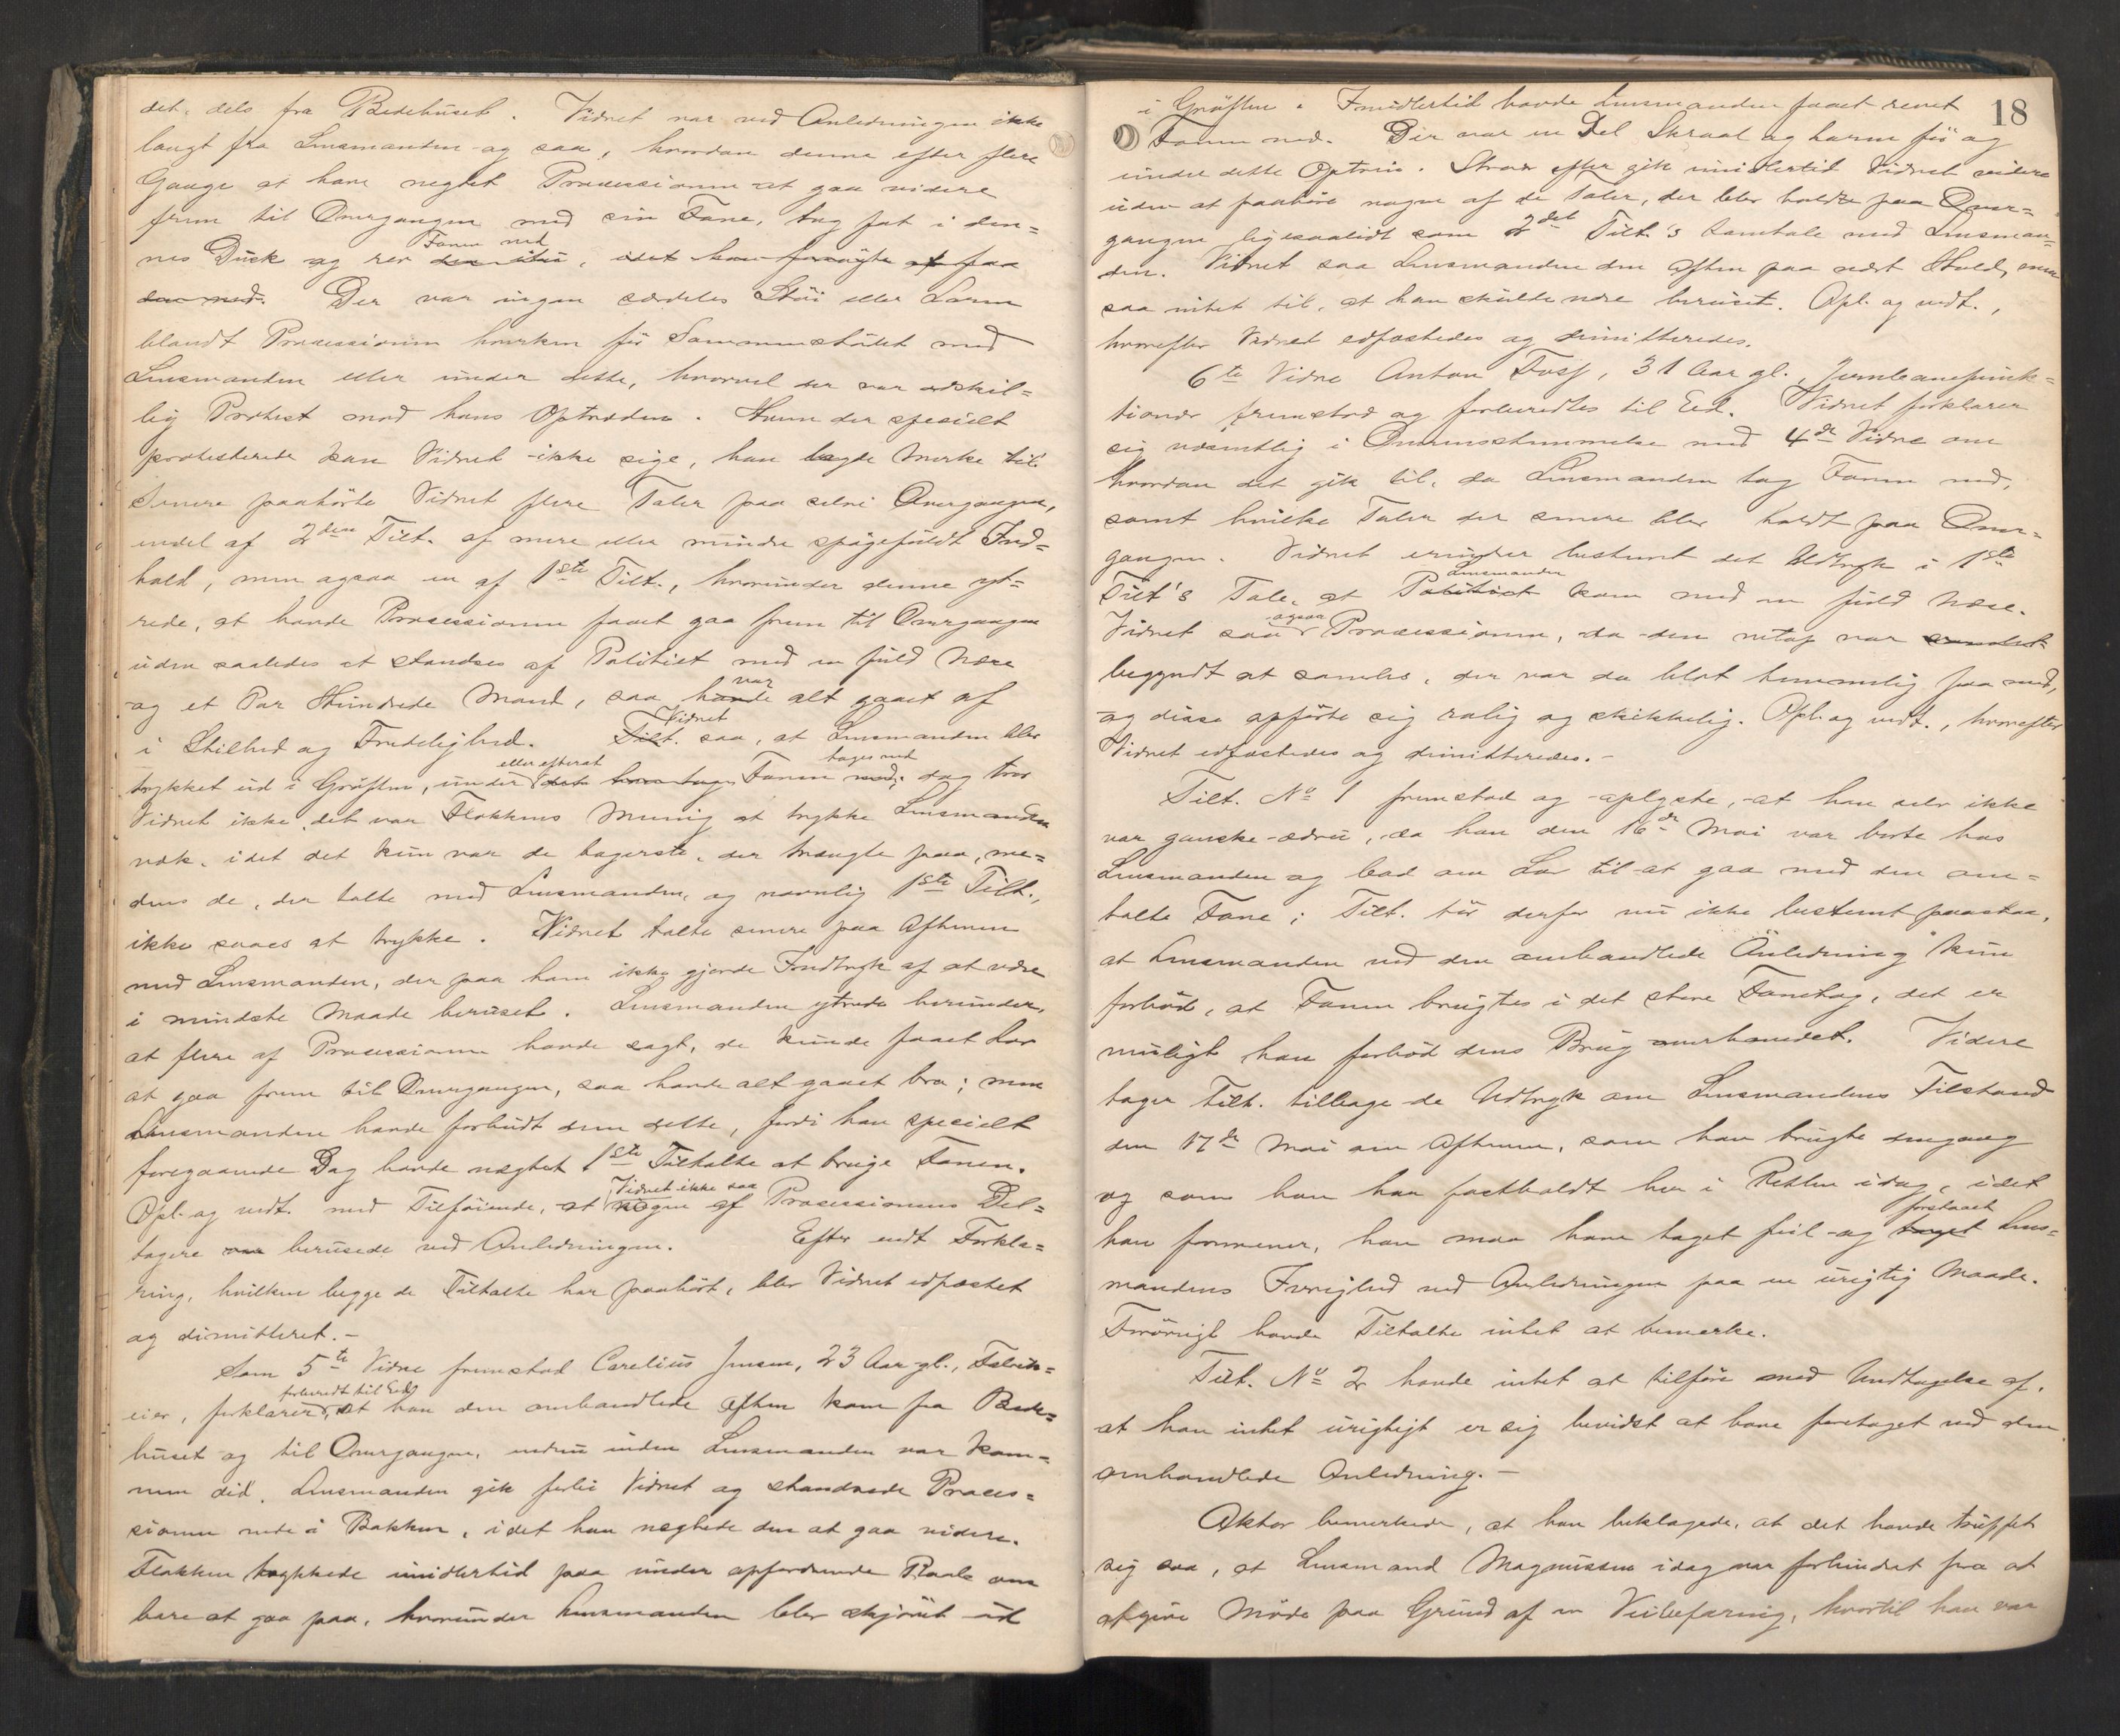 det, dels fra Bedehuset. Vidnet var ved Anledningen ikke
langt fra Lensmanden og saa, hvordan denne efter flere
Gange at have negtet Processionen at gaa videre
frem til Overgangen med sin Fane, tog fat i den=
nes Duk og rev Fanen ned den itu, idet han forsøgte at faa
den ned. Der var ingen særdeles Støi eller Larm
blandt Processionen hverken før Sammenstødet med
Lensmanden eller under dette, hvorvel der var adskil=
lig Protest mod hans Optræden. Hvem der specielt
protesterede kan Vidnet ikke sige, han lagde Mærke til.
Senere paahørte Vidnet flere Taler paa selve Overgangen,
endel af 2den Tilt. af mere eller mindre spøgefuldt Ind=
hold, men ogsaa en af 1ste Tilt., hvorunder denne yt=
rede, at havde Processionen faaet gaa frem til Overgangen
uden saaledes at standses af Politiet med en fuld Næse
og et Par Hundrede Mand, saa havde var alt gaaet af
i Stilhed og Fredelighed. Tilt. Vidnet saa, at Lensmanden blev
trykket ud i Grøften, under eller efterat det han tog Fanen toges ned med; dog tror
Vidnet ikke, det var Flokkens Mening at trykke Lensmanden
væk, idet det kun var de bagerste, der trængte paa, me=
dens de, der talte med Lensmanden, og navnlig 1ste Tilt.,
ikke saaes at trykke. Vidnet talte senere paa Aftenen
med Lensmanden, der paa ham ikke gjorde Indtryk af at være
i mindste Maade beruset. Lensmanden ytrede herunder,
at flere af Processionen havde sagt, de kunde faaet Lov
at gaa frem til Overgangen, saa havde alt gaaet bra; men
Lensmanden havde forbudt dem dette, fordi han specielt
foregaaende Dag havde nægtet 1ste Tiltalte at bruge Fanen.
Opl. og vedt. med Tilføiende, at Vidnet ikke saa nogen af Processionens Del=
tagere var berusede ved Anledningen. Efter endt Forkla=
ring, hvilken begge de Tiltalte har paahørt, blev Vidnet edfæstet
og dimitteret.-
Som 5te Vidne fremstod Carelius Jensen, 23 Aar gl.,
eier, forklarer forberedt til Ed, at han den omhandlede Aften kom fra Bede=
huset og til Overgangen, endnu inden Lensmanden var kom=
men did. Lensmanden gik forbi Vidnet og standsede Proces=
sionen nede i Bakken, idet han negtede den at gaa videre.
Flokken trykkede imidlertid paa under opfordrende Raab om
bare at gaa paa, hvorunder Lensmanden blev skjøvet ud
18
i Grøften. Imidlertid havde Lensmanden faaet revet
Fanen ned. Der var en Del Skraal og Larm før og
under dette Optrin. Strax efter gik imidlertid Vidnet videre
uden at paahøre nogen af de Taler, der blev holdte paa Over=
gangen ligesaalidt som 2det Tilt.'s Samtale med Lensman=
den. Vidnet saa Lensmanden den Aften paa nært Hold, men
saa intet til, at han skulde være beruset. Opl. og vedt.,
hvorefter Vidnet edfæstedes og dimitteredes.
6te Vidne Anton Foss, 31 Aar gl., Jernbanefunk=
tionær fremstod og forberedtes til Ed. Vidnet forklarer
sig væsentlig i Overensstemmelse med 4de Vidne om
hvordan det gik til, da Lensmanden tog Fanen ned,
samt hvilke Taler der senere blev holdt paa Over=
gangen. Vidnet erindrer bestemt det Udtryk i 1ste
Tilt's Tale, at Politiet Lensmanden kom med en fuld Næse.
Vidnet saa ogsaa Processionen, da den netop var samlet
begyndt at samles, der var da blot temmelig faa med,
og disse opførte sig rolig og skikkelig. Opl. og vedt., hvorefter
Vidnet edfæstedes og dimitteredes.-
Tilt. No 1 fremstod og oplyste, at han selv ikke
var ganske ædru, da han den 16de Mai var borte hos
Lensmanden og bad om Lov til at gaa med den om=
talte Fane; Tilt. tør derfor nu ikke bestemt paastaa,
at Lensmanden ved den omhandlede Anledning kun
forbød, at Fanen brugtes i det store Fanetog, det er
muligt han forbød dens Brug overhovedet. Videre
tager Tilt. tilbage de Udtryk om Lensmandens Tilstand
den 17de Mai om Aftenen, som han brugte dengang
og som han har fastholdt her i Retten idag, idet
han formener, han maa have taget feil og taget forstaaet Lens=
mandens Ivrighed ved Anledningen paa en urigtig Maade.
Forøvrigt havde Tiltalte intet at bemærke.
Tilt. No 2 havde intet at tilføie med Undtagelse af,
at han intet urigtigt er sig bevidst at have foretaget ved den
omhandlede Anledning.-
Aktor bemerkede, at han beklagede, at det havde truffet
sig saa, at Lensmand Magnussen idag var forhindret fra at
afgive Møde paa Grund af en Veibefaring, hvortil han var